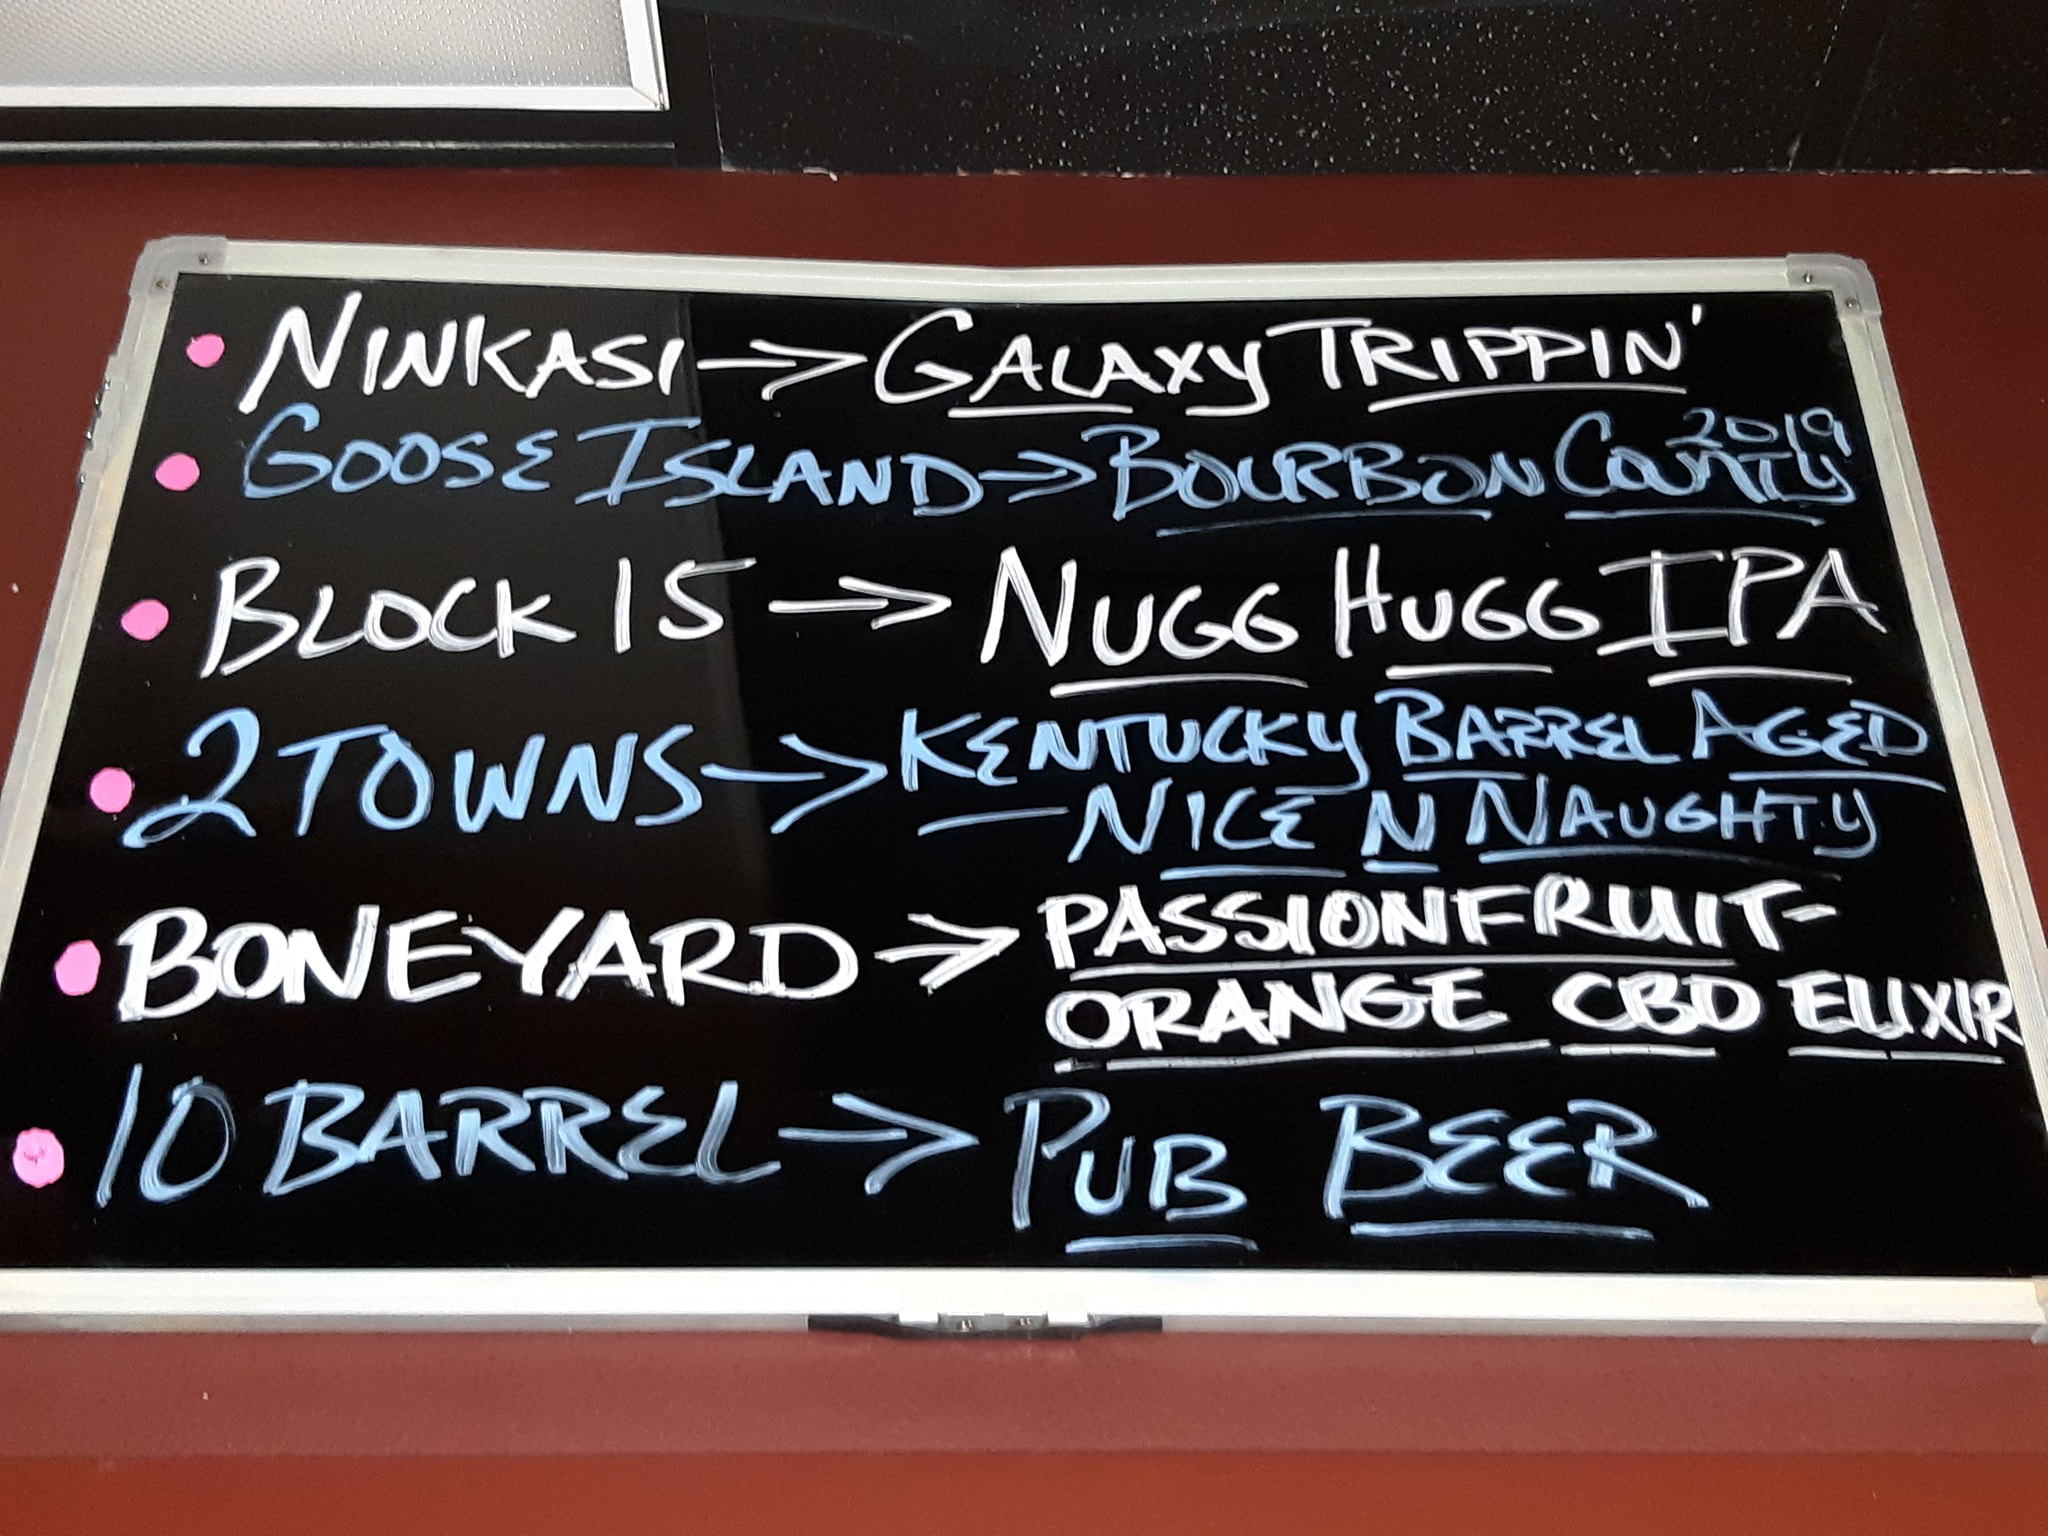 NINKASI → GALAXY TRIPPIN'
GOOSE ISLAND → BOURBON COUNTY 2019
BLOCK 15 → NUGG HUGG IPA
2 TOWNS → KENTUCKY BARREL AGED
NICE N NAUGHTY
BONEYARD → PASSIONFRUIT-
ORANGE CBD ELIXIR
10 BARREL → PUB BEER